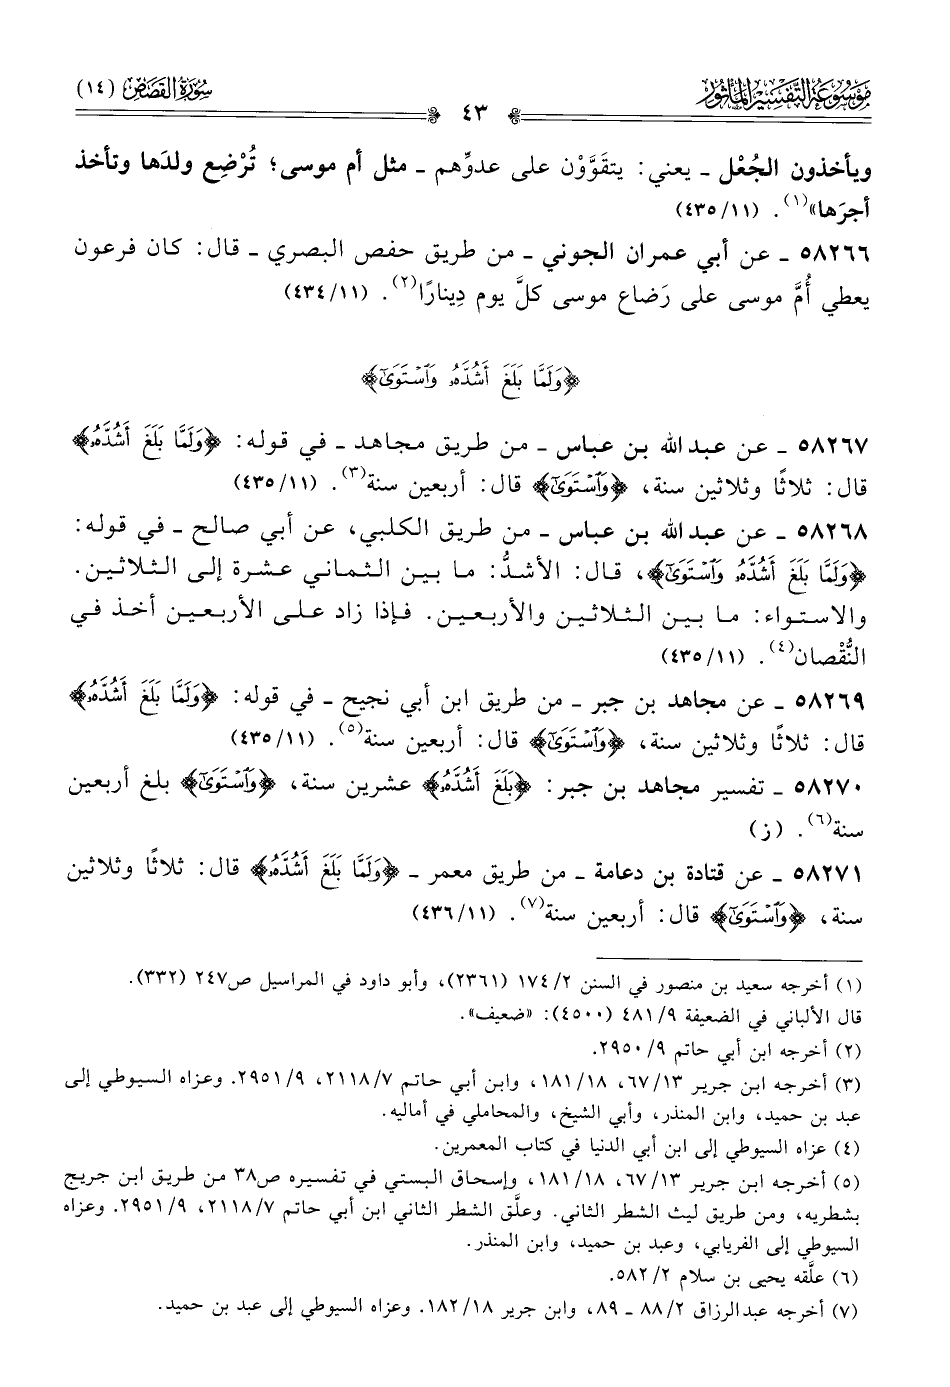 موسوعة التفسير المأثور
سورة القصص (١٤)
٤٣
ويأخذون الجُعْل ـ يعني: يتقوَّوْن على عدوِّهم ـ مثل أم موسى؛ تُرْضِع ولدَها وتأخذ
أجرَها»(١). (١١/ ٤٣٥)
٥٨٢٦٦ ـ عن أبي عمران الجوني ـ من طريق حفص البصري ـ قال: كان فرعون
يعطي أُمَّ موسى على رَضاع موسى كلَّ يوم دِينارًا(٢). (١١/ ٤٣٤)
﴿وَلَمَّا بَلَغَ أَشُدَّهُۥ وَٱسْتَوَىٰٓ﴾
٥٨٢٦٧ ـ عن عبد الله بن عباس ـ من طريق مجاهد ـ في قوله: ﴿وَلَمَّا بَلَغَ أَشُدَّهُۥ﴾
قال: ثلاثًا وثلاثين سنة، ﴿وَٱسْتَوَىٰٓ﴾ قال: أربعين سنة(٣). (١١/ ٤٣٥)
٥٨٢٦٨ ـ عن عبد الله بن عباس ـ من طريق الكلبي، عن أبي صالح ـ في قوله:
﴿وَلَمَّا بَلَغَ أَشُدَّهُۥ وَٱسْتَوَىٰٓ﴾، قال: الأشدُّ: ما بين الثماني عشرة إلى الثلاثين.
والاستواء: ما بين الثلاثين والأربعين. فإذا زاد على الأربعين أخذ في
النُّقْصان(٤). (١١/ ٤٣٥)
٥٨٢٦٩ ـ عن مجاهد بن جبر ـ من طريق ابن أبي نجيح ـ في قوله: ﴿وَلَمَّا بَلَغَ أَشُدَّهُۥ﴾
قال: ثلاثًا وثلاثين سنة، ﴿وَٱسْتَوَىٰٓ﴾ قال: أربعين سنة(٥). (١١/ ٤٣٥)
٥٨٢٧٠ ـ تفسير مجاهد بن جبر: ﴿بَلَغَ أَشُدَّهُۥ﴾ عشرين سنة، ﴿وَٱسْتَوَىٰٓ﴾ بلغ أربعين
سنة(٦). (ز)
٥٨٢٧١ ـ عن قتادة بن دعامة ـ من طريق معمر ـ ﴿وَلَمَّا بَلَغَ أَشُدَّهُۥ﴾ قال: ثلاثًا وثلاثين
سنة، ﴿وَٱسْتَوَىٰٓ﴾ قال: أربعين سنة(٧). (١١/ ٤٣٦)
(١) أخرجه سعيد بن منصور في السنن ٢/ ١٧٤ (٢٣٦١)، وأبو داود في المراسيل ص٢٤٧ (٣٣٢).
قال الألباني في الضعيفة ٩/ ٤٨١ (٤٥٠٠): «ضعيف».
(٢) أخرجه ابن أبي حاتم ٩/ ٢٩٥٠.
(٣) أخرجه ابن جرير ١٣/ ٦٧، ١٨/ ١٨١، وابن أبي حاتم ٧/ ٢١١٨، ٩/ ٢٩٥١. وعزاه السيوطي إلى
عبد بن حميد، وابن المنذر، وأبي الشيخ، والمحاملي في أماليه.
(٤) عزاه السيوطي إلى ابن أبي الدنيا في كتاب المعمرين.
(٥) أخرجه ابن جرير ١٣/ ٦٧، ١٨/ ١٨١، وإسحاق البستي في تفسيره ص٣٨ من طريق ابن جريج
بشطريه، ومن طريق ليث الشطر الثاني. وعلَّق الشطر الثاني ابن أبي حاتم ٧/ ٢١١٨، ٩/ ٢٩٥١. وعزاه
السيوطي إلى الفريابي، وعبد بن حميد، وابن المنذر.
(٦) علَّقه يحيى بن سلام ٢/ ٥٨٢.
(٧) أخرجه عبدالرزاق ٢/ ٨٨ ـ ٨٩، وابن جرير ١٨/ ١٨٢. وعزاه السيوطي إلى عبد بن حميد.